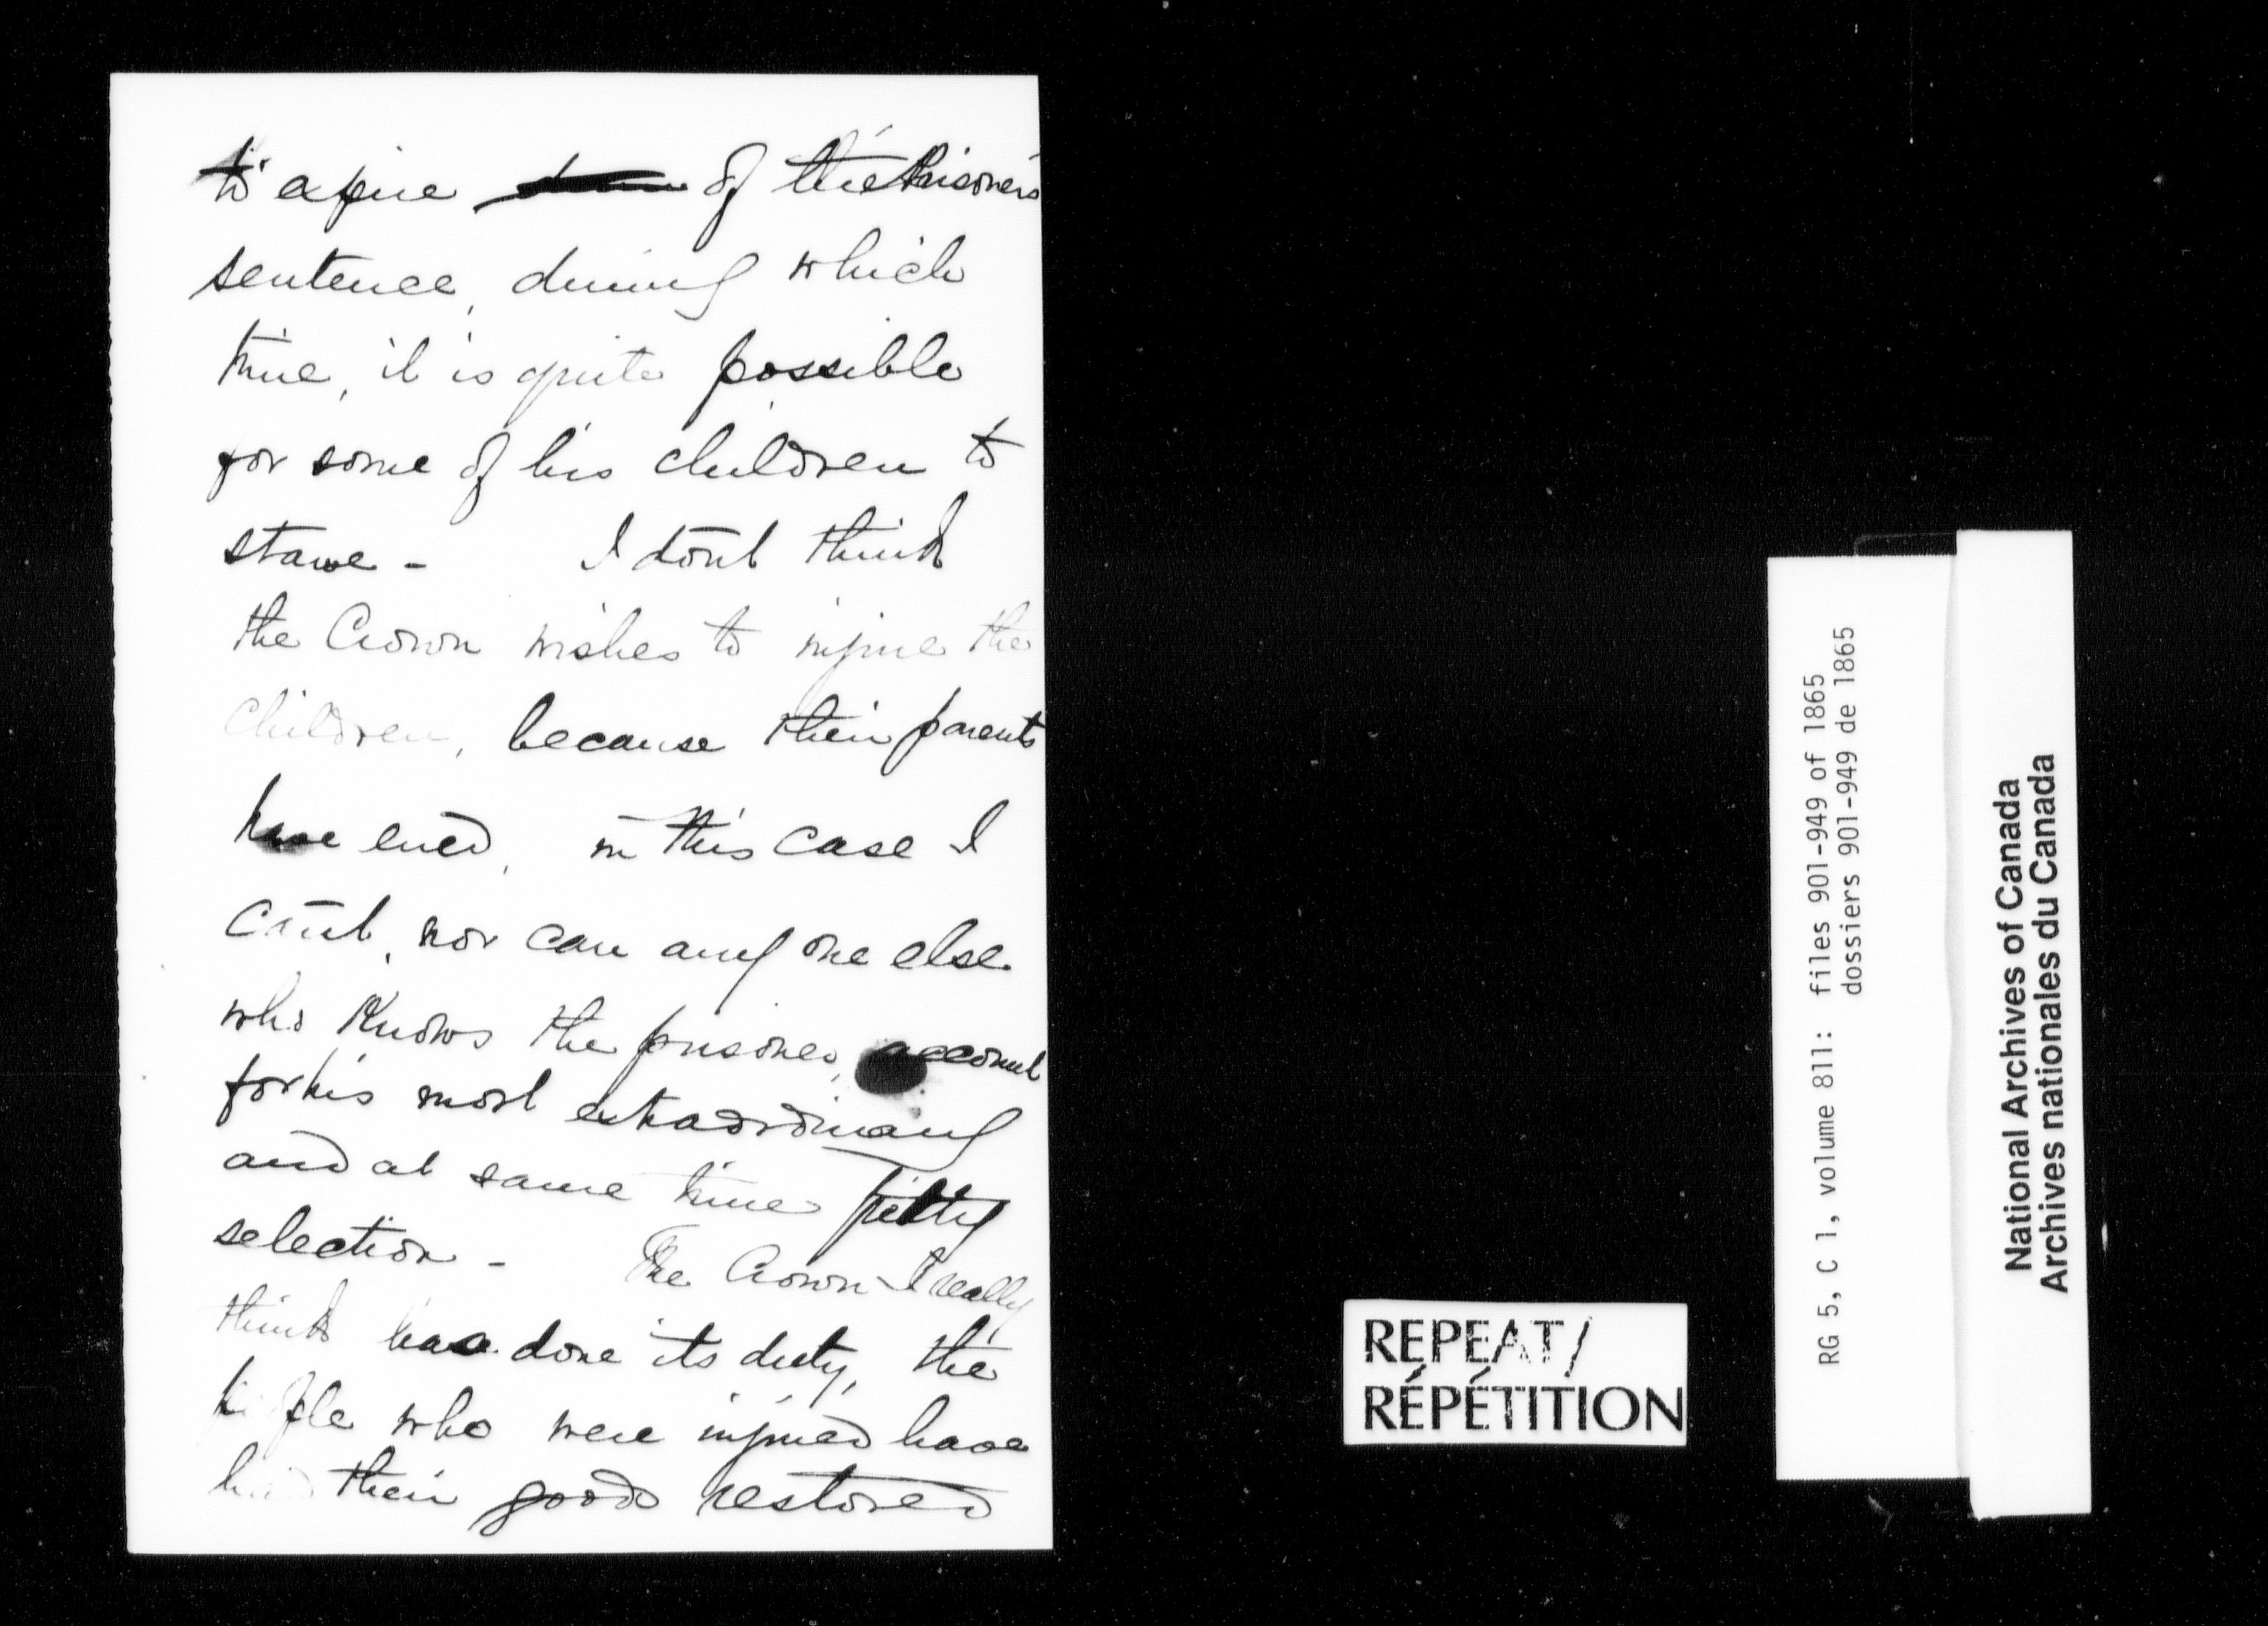 to expire of the Prisoner's
sentence, during which
time, it is quite possible
for some of his children to
starve - I dont think
the Crown wishes to injure the
children, because their parents
have erred, in this case I
cant, nor can any one else
who Knows the prisoner, account
for his most extraordinary
and at same time
selection - The Crown I really
think has done its duty, the
people who were injured have
had their goods restored
REPEAT/
RÉPÉTITION
RG 5, C 1, volume 811: files 901-949 of 1865
dossiers 901-949 de 1865
National Archives of Canada
Archives nationales du Canada